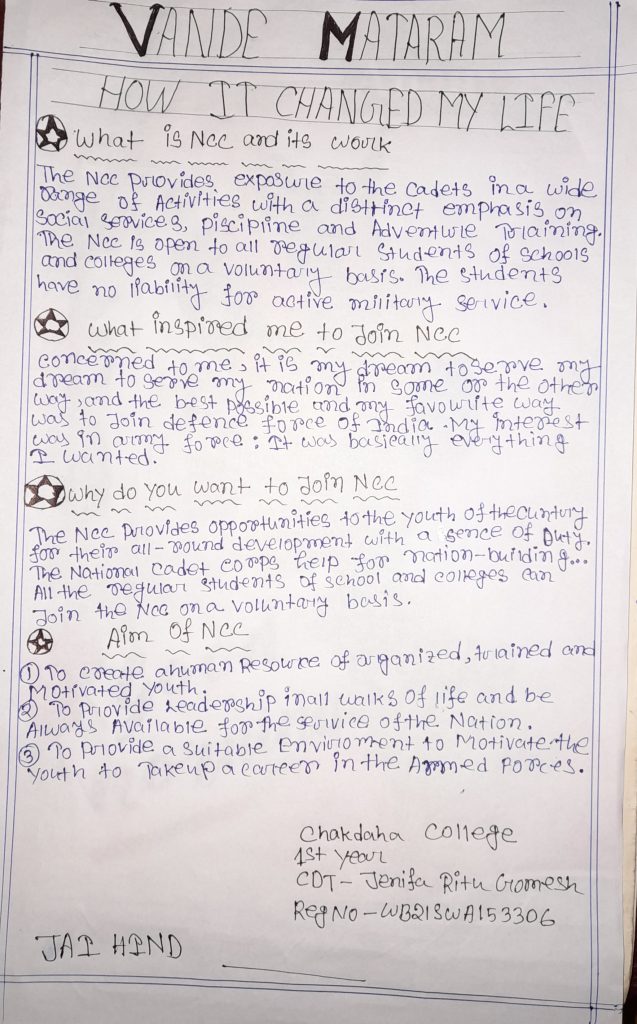 VANDE MATARAM
HOW IT CHANGED MY LIFE
What is Ncc and its work
The Ncc provides exposure to the cadets in a wide
range of Activities with a distinct emphasis on
Social Services, Discipline and Adventure Training.
The Ncc is open to all regular students of schools
and colleges on a voluntary basis. The students
have no liability for active military service.
What inspired me to Join Ncc
concerned to me, it is my dream to serve my
dream to serve my nation in some or the other
way, and the best possible and my favourite way
was to Join defence force of India. My interest
was in army force: It was basically everything
I wanted.
Why do you want to Join NCC
The Ncc provides opportunities to the youth of the cuntury
for their all-round development with a sence of Duty.
The National cadet corps help for nation-building...
All the regular students of school and colleges can
Join the Ncc on a voluntary basis.
Aim Of NCC
① To create a human Resource of organized, trained and
Motivated youth.
② To provide Leadership in all walks of life and be
Always Available for the service of the Nation.
③ To provide a suitable Enviroment to Motivate the
youth to Take up a career in the Armed Forces.
Chakdaha College
1st year
CDT- Jenifa Ritu Gomesh
Reg No-WB21SWA153306
JAI HIND